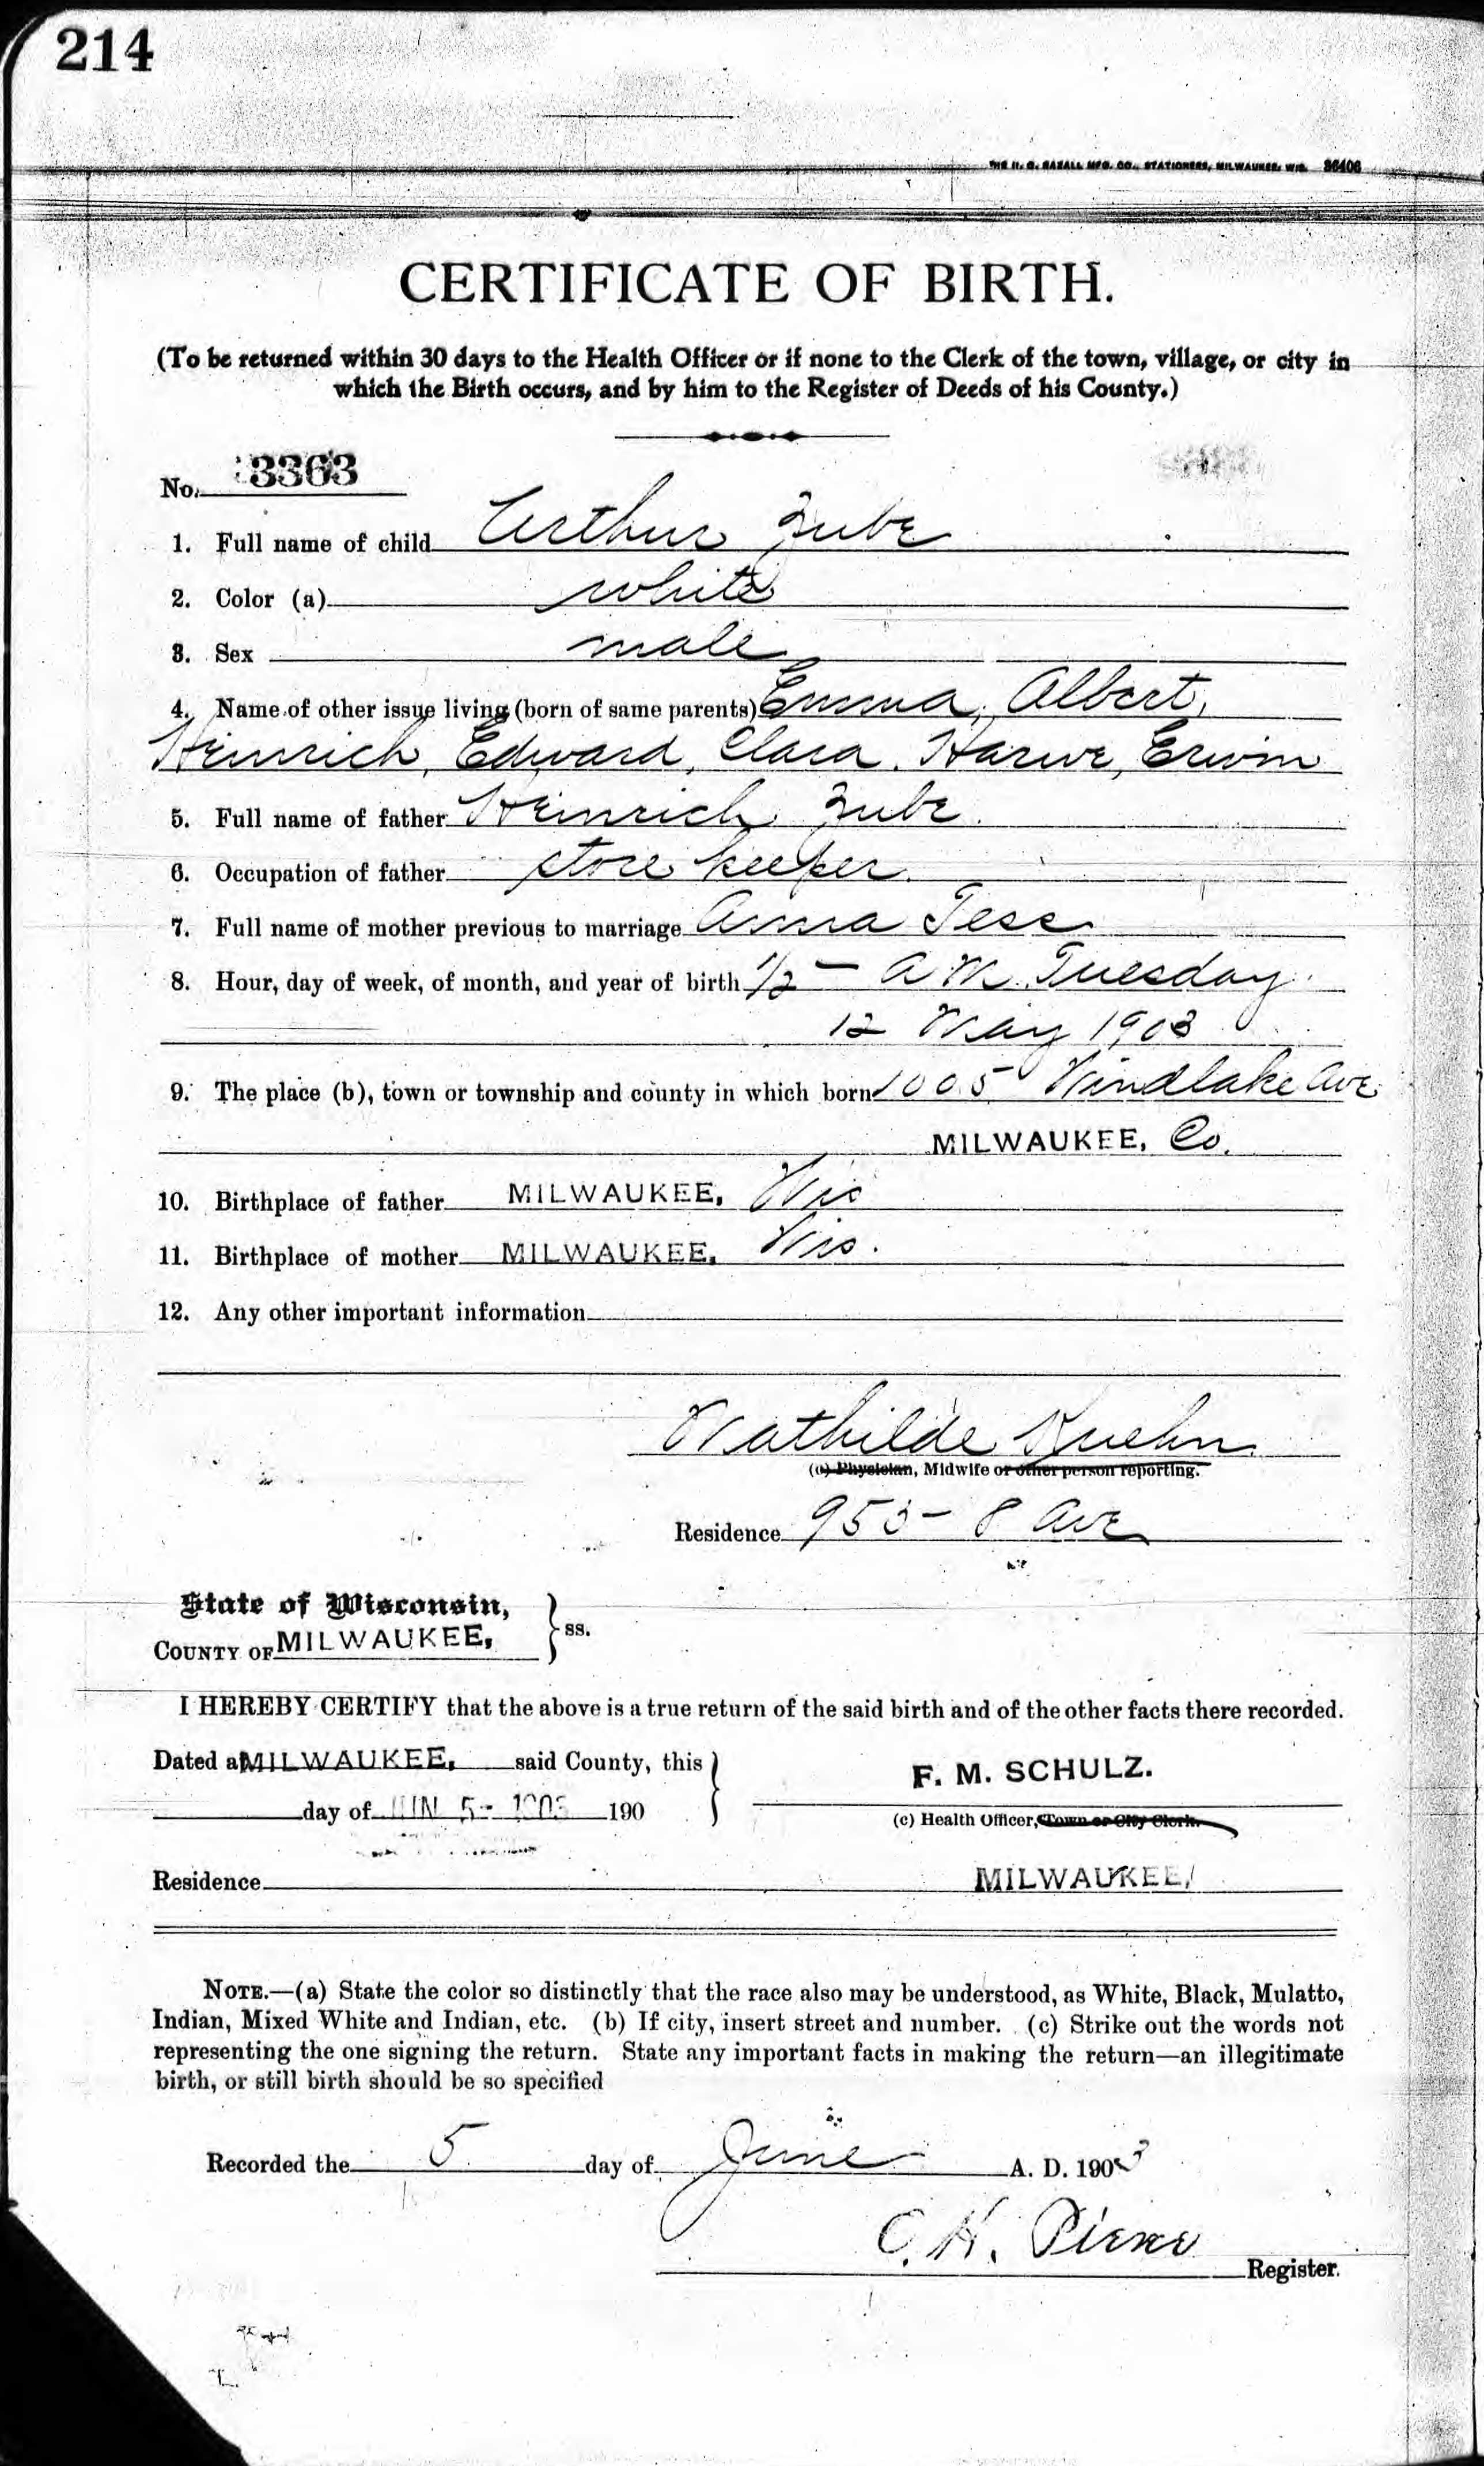 214
THE H. G. RAZALL MFG. CO., STATIONERS, MILWAUKEE, WIS. 36406
CERTIFICATE OF BIRTH.
(To be returned within 30 days to the Health Officer or if none to the Clerk of the town, village, or city in
which the Birth occurs, and by him to the Register of Deeds of his County.)
No. 3363
1. Full name of child Arthur Zube
2. Color (a) white
3. Sex male
4. Name of other issue living (born of same parents) Emma, Albert,
Heinrich, Edward, Clara, Harwe, Erwin
5. Full name of father Heinrich Zube.
6. Occupation of father store keeper.
7. Full name of mother previous to marriage Anna Tess
8. Hour, day of week, of month, and year of birth 1/2 – AM. Tuesday
12 May 1903
9. The place (b), town or township and county in which born 1005 Windlake Ave
MILWAUKEE, Co.
10. Birthplace of father MILWAUKEE, Wis
11. Birthplace of mother MILWAUKEE, Wis.
12. Any other important information
Mathilde Kuehn
(c) Physician, Midwife or other person reporting.
Residence 953 - 8 Ave
State of Wisconsin,
COUNTY OF MILWAUKEE, } ss.
I HEREBY CERTIFY that the above is a true return of the said birth and of the other facts there recorded.
Dated at MILWAUKEE, said County, this
F. M. SCHULZ.
day of JUN 5 - 1903 190
(c) Health Officer, Town or City Clerk.
Residence MILWAUKEE,
NOTE.—(a) State the color so distinctly that the race also may be understood, as White, Black, Mulatto,
Indian, Mixed White and Indian, etc. (b) If city, insert street and number. (c) Strike out the words not
representing the one signing the return. State any important facts in making the return—an illegitimate
birth, or still birth should be so specified
Recorded the 5 day of June A. D. 1903
C. H. Pierce
Register.